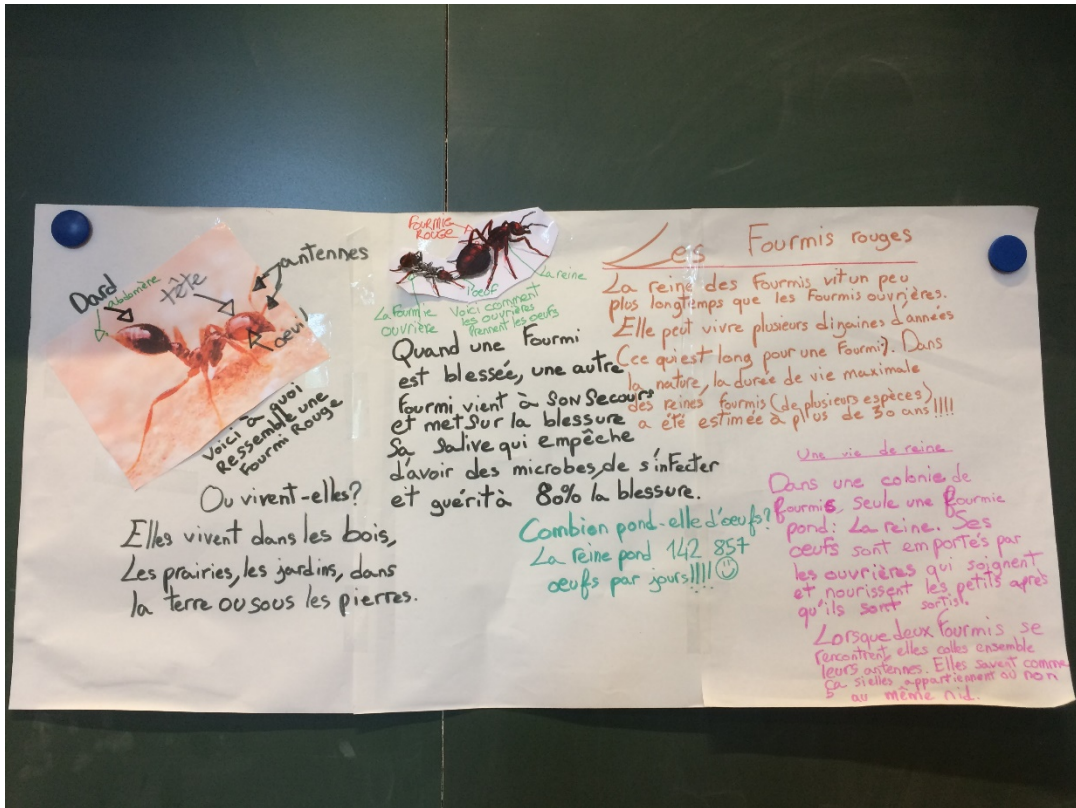 Les Fourmis rouges
antennes
tête
Dard
abdomière
oevil
Voici à quoi
Ressemble une
Fourmi Rouge
Ou vivent-elles?
Elles vivent dans les bois,
Les prairies, les jardins, dans
la terre ou sous les pierres.
FOURMIE
ROUGE
La reine
La Fourmie
ouvrière
l'oeuf
Voici comment
les ouvrières
prennent les oeufs
Quand une Fourmi
est blessée, une autre
Fourmi vient à son secours
et met sur la blessure
Sa salive qui empêche
d'avoir des microbes, de s'infecter
et guérit à 80% la blessure.
Combien pond-elle d'oeufs?
La reine pond 142 857
oeufs par jours!!!!
La reine des Fourmis vit un peu
plus longtemps que les Fourmis ouvrières.
Elle peut vivre plusieurs dizaines d'années
(ce qui est long pour une Fourmi). Dans
la nature, la durée de vie maximale
des reines fourmis (de plusieurs espèces)
a été estimée à plus de 30 ans!!!!
Une vie de reine
Dans une colonie de
fourmis, seule une fourmie
pond: La reine. Ses
oeufs sont emportés par
les ouvrières qui soignent
et nourissent les petits après
qu'ils sont sortis.
Lorsque deux Fourmis se
rencontrent, elles colles ensemble
leurs antennes. Elles savent comme
ça si elles appartiennent ou non
au même nid.